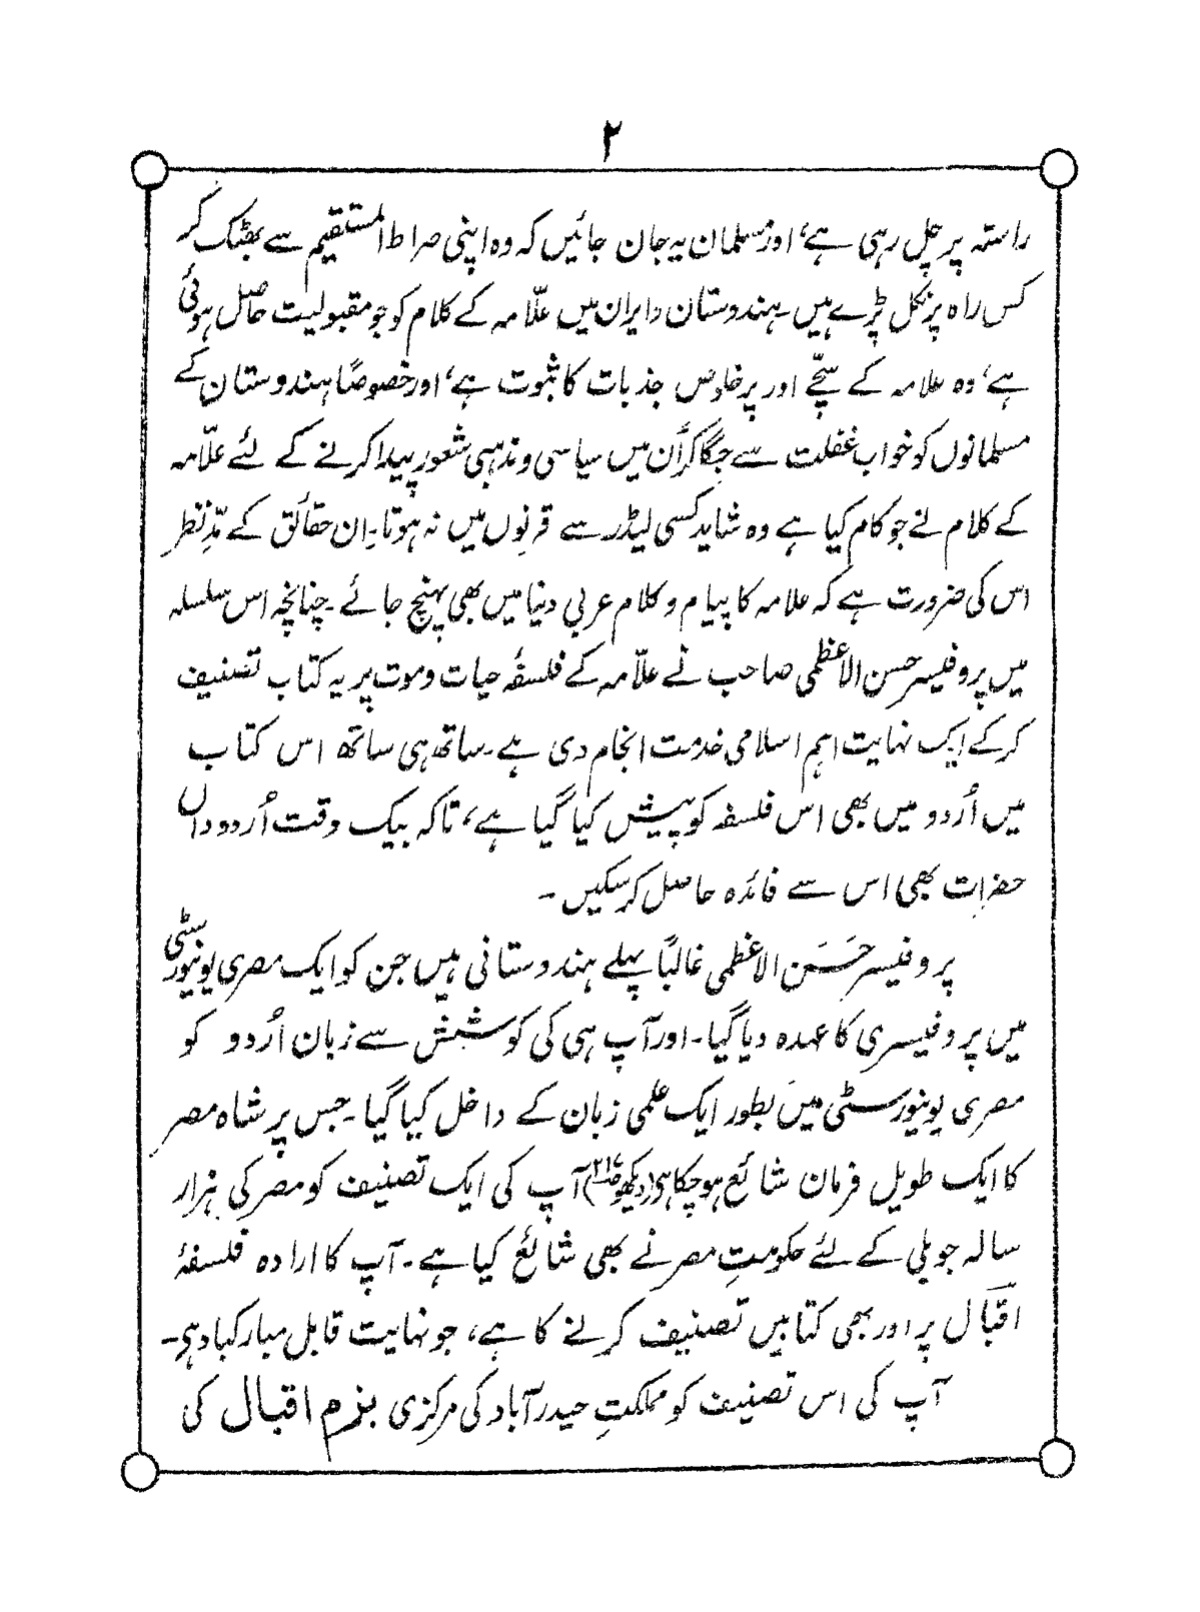 ۲
راستہ پر چل رہی ہے، اور مسلمان یہ جان جائیں کہ وہ اپنی صراط المستقیم سے بھٹک کر
کس راہ پر نکل پڑے ہیں۔ ہندوستان و ایران میں علّامہ کے کلام کو جو مقبولیت حاصل ہوئی
ہے، وہ علامہ کے سچّے اور پر خلوص جذبات کا ثبوت ہے، اور خصوصًا ہندوستان کے
مسلمانوں کو خواب غفلت سے جگا کر اُن میں سیاسی و مذہبی شعور پیدا کرنے کے لئے علّامہ
کے کلام نے جو کام کیا ہے وہ شاید کسی لیڈر سے قرنوں میں نہ ہوتا۔ ان حقائق کے مدِّ نظر
اس کی ضرورت ہے کہ علامہ کا پیام و کلام عربی دنیا میں بھی پہنچ جائے۔ چنانچہ اس سلسلہ
میں پروفیسر حسن الاعظمی صاحب نے علّامہ کے فلسفۂ حیات و موت پر یہ کتاب تصنیف
کر کے ایک نہایت اہم اسلامی خدمت انجام دی ہے۔ ساتھ ہی ساتھ اس کتاب
میں اُردو میں بھی اس فلسفہ کو پیش کیا گیا ہے، تاکہ بیک وقت اُردو داں
حضرات بھی اس سے فائدہ حاصل کر سکیں۔
پروفیسر حَسَن الاعظمی غالبًا پہلے ہندوستانی ہیں جن کو ایک مصری یونیورسٹی
میں پروفیسری کا عہدہ دیا گیا۔ اور آپ ہی کی کوشش سے زبان اُردو کو
مصری یونیورسٹی میں بطور ایک علمی زبان کے داخل کیا گیا۔ جس پر شاہ مصر
کا ایک طویل فرمان شائع ہو چکا ہی (دیکھو ص۲۱۷) آپ کی ایک تصنیف کو مصر کی ہزار
سالہ جوبلی کے لئے حکومتِ مصر نے بھی شائع کیا ہے۔ آپ کا ارادہ فلسفۂ
اقبال پر اور بھی کتابیں تصنیف کرنے کا ہے، جو نہایت قابل مبارکباد ہی۔
آپ کی اس تصنیف کو مملکتِ حیدرآباد کی مرکزی بزم اقبال کی